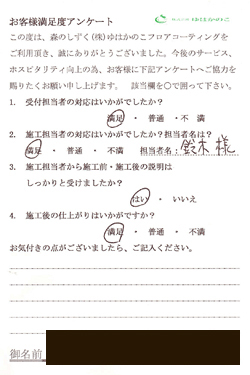 お客様満足度アンケート
この度は、森のしずく(株)ゆはかのこフロアコーティングを
ご利用頂き、誠にありがとうございました。今後のサービス、
ホスピタリティ向上の為、お客様に下記アンケートへご協力を
賜りたくお願い申し上げます。 該当欄を〇で囲って下さい。
1. 受付担当者の対応はいかがでしたか？
満足 ・ 普通 ・不満
2. 施工担当者の対応はいかがでしたか？担当者名は？
満足 ・ 普通 ・ 不満 担当者名：鈴木様
3. 施工担当者から施工前・施工後の説明は
しっかりと受けましたか？
はい ・ いいえ
4. 施工後の仕上がりはいかがですか？
満足 ・ 普通 ・ 不満
お気付きの点がございましたら、ご記入ください。
御名前